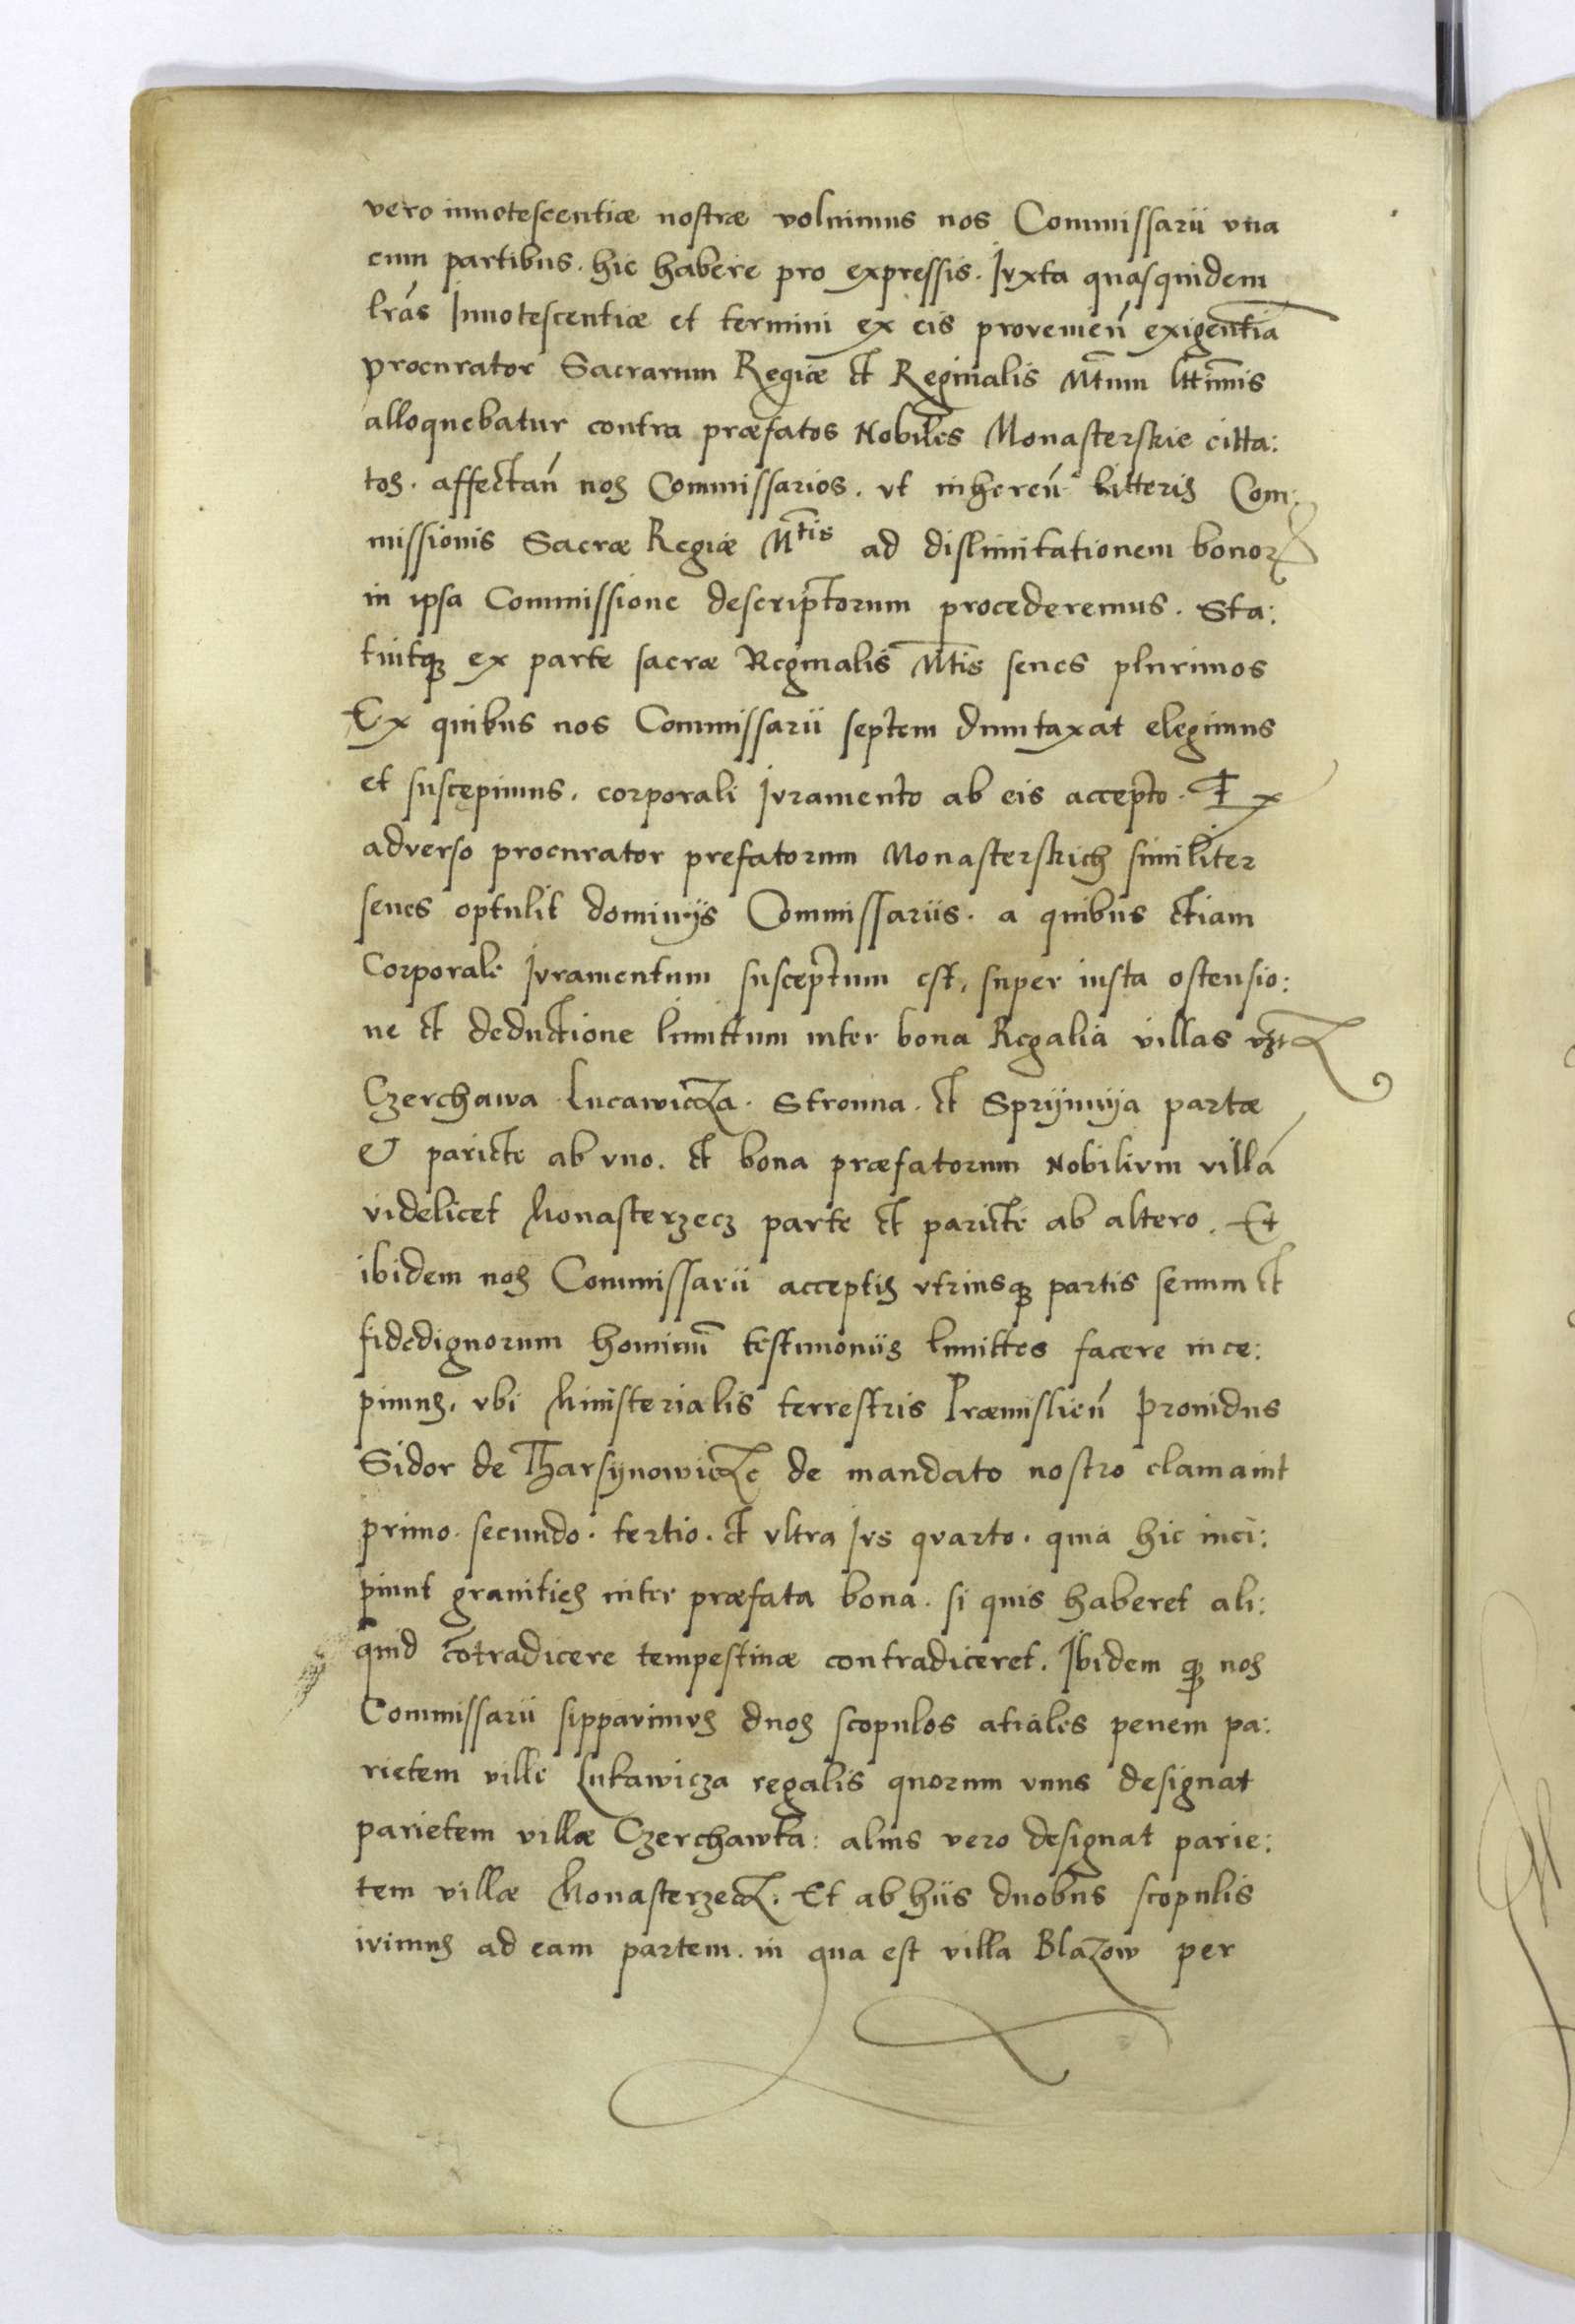 vero innotescentiæ nostræ volumus nos Commissarii vna
cum partibus. hic habere pro expressis. Iuxta quasquidem
lrás Innotescentiæ et termini ex eis provenień exigentia
procurator Sacrarum Regiæ et Reginalis Mtum lttimis
alloquebatur contra præfatos Nobiles Monasterskie citta:
tos. affectań nos Commissarios. vt inhereń litteris Com:
missionis Sacræ Regiæ Mtis ad dislimitationem bonoꝝ
in ipsa Commissione descriptorum procederemus. Sta:
tuitqꝫ ex parte sacræ Reginalis Mtis senes plurimos
Ex quibus nos Commissarii septem dumtaxat elegimus
et suscepimus. corporali Iuramento ab eis accepto. Ex
adverso procurator prefatorum Monasterskich similiter
senes optulit dominijs Commissariis. a quibus etiam
Corporale Iuramentum susceptum est, super iusta ostensio:
ne et deductione limittum inter bona Regalia villas vꝫt
Czerchawa. Lucawicza. Stronna. et Sprijnnija partæ
& pariete ab vno. et bona præfatorum Nobilivm villá
videlicet Monasterzecz parte et pariete ab altero. Et
ibidem nos Commissarii acceptis vtriusqꝫ partis senum et
fidedignorum hominū testimoniis limittes facere ince:
pimus. vbi Ministerialis terrestris Præmislień Prouidus
Sidor de Tharsynowicze de mandato nostro clamauit
primo. secundo. tertio. et vltra Ivs qvarto. quia hic inci:
piunt granities inter præfata bona. si quis haberet ali:
quid cōtradicere tempestiuæ contradiceret. Ibidem qꝫ nos
Commissarii sipparimvs duos scopulos atiales penem pa:
rietem ville Lukawicza regalis quorum vnus designat
parietem villæ Czerchawka: alius vero designat parie:
tem villæ Monasterzecz. Et ab hiis duobus scopulis
ivimus ad eam partem. in qua est villa Blazow per